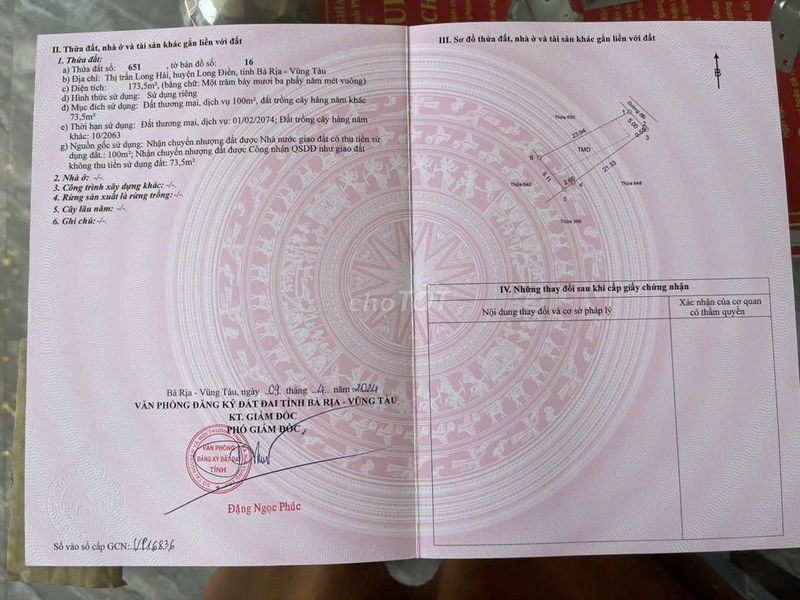 II. Thửa đất, nhà ở và tài sản khác gắn liền với đất
1. Thửa đất:
a) Thửa đất số: 651 , tờ bản đồ số: 16
b) Địa chỉ: Thị trấn Long Hải, huyện Long Điền, tỉnh Bà Rịa - Vũng Tàu
c) Diện tích: 173,5m², (bằng chữ: Một trăm bảy mươi ba phẩy năm mét vuông)
d) Hình thức sử dụng: Sử dụng riêng
đ) Mục đích sử dụng: Đất thương mại, dịch vụ 100m², đất trồng cây hàng năm khác
73,5m²
e) Thời hạn sử dụng: Đất thương mại, dịch vụ: 01/02/2074; Đất trồng cây hàng năm
khác: 10/2063
g) Nguồn gốc sử dụng: Nhận chuyển nhượng đất được Nhà nước giao đất có thu tiền sử
dụng đất.: 100m²; Nhận chuyển nhượng đất được Công nhận QSDĐ như giao đất
không thu tiền sử dụng đất: 73,5m²
2. Nhà ở: -/-
3. Công trình xây dựng khác: -/-
4. Rừng sản xuất là rừng trồng:-/-
5. Cây lâu năm: -/-
6. Ghi chú:-/-
Bà Rịa - Vũng Tàu, ngày 09 tháng 4 năm 2024
VĂN PHÒNG ĐĂNG KÝ ĐẤT ĐAI TỈNH BÀ RỊA - VŨNG TÀU
KT. GIÁM ĐỐC
PHÓ GIÁM ĐỐC
VĂN PHÒNG
ĐĂNG KÝ ĐẤT ĐAI
TỈNH
Đặng Ngọc Phúc
Số vào sổ cấp GCN: VP16836
III. Sơ đồ thửa đất, nhà ở và tài sản khác gắn liền với đất
B
Thửa 650
Đường đất
1
2
3
5.00
23.94
TMD
21.53
6
9.11
2.66
4
5
Thửa 648
Thửa 386
choTỐT
IV. Những thay đổi sau khi cấp giấy chứng nhận
Nội dung thay đổi và cơ sở pháp lý
Xác nhận của cơ quan
có thẩm quyền